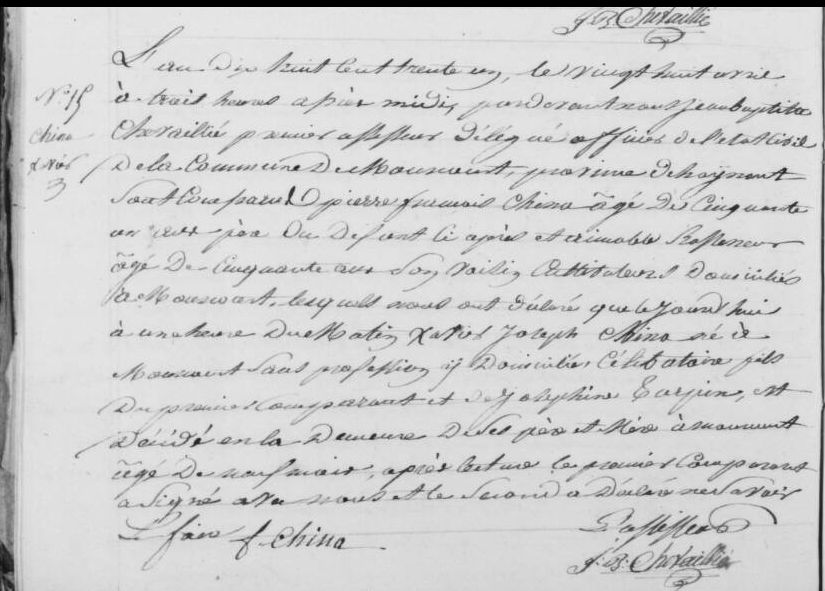 J. B. Chevaillié
L'an dix huit cent trente un, le vingt huit avril
N° 15 à trois heures après midi, pardevant nous Jean baptiste
China Chevaillié premier assesseur délégué officier de l'etat Civil
De la Commune De Mouscront, province d'haÿnaut
3 Sont Comparus pierre francois China âgé De Cinquante
un ans père Du Defunt ci après et aimable
âgé De Cinquante ans Son voisin Cultivateurs Domiciliés
à Mouscront, lesquels nous ont déclaré que ce Jourd'hui
à une heure Du Matin Xavier Joseph China né à
Mouscront Sans profession y Domicilié, Célibataire fils
Du premier Comparant et de Josephine, est
Décédé en la Demeure De Ses père et Mère à mouscront
âgé De neuf mois, après lecture le premier Comparant
a Signé avec nous et le Second a Déclaré ne Savoir
Le faire f. China L'assesseur
J. B. Chevaillié